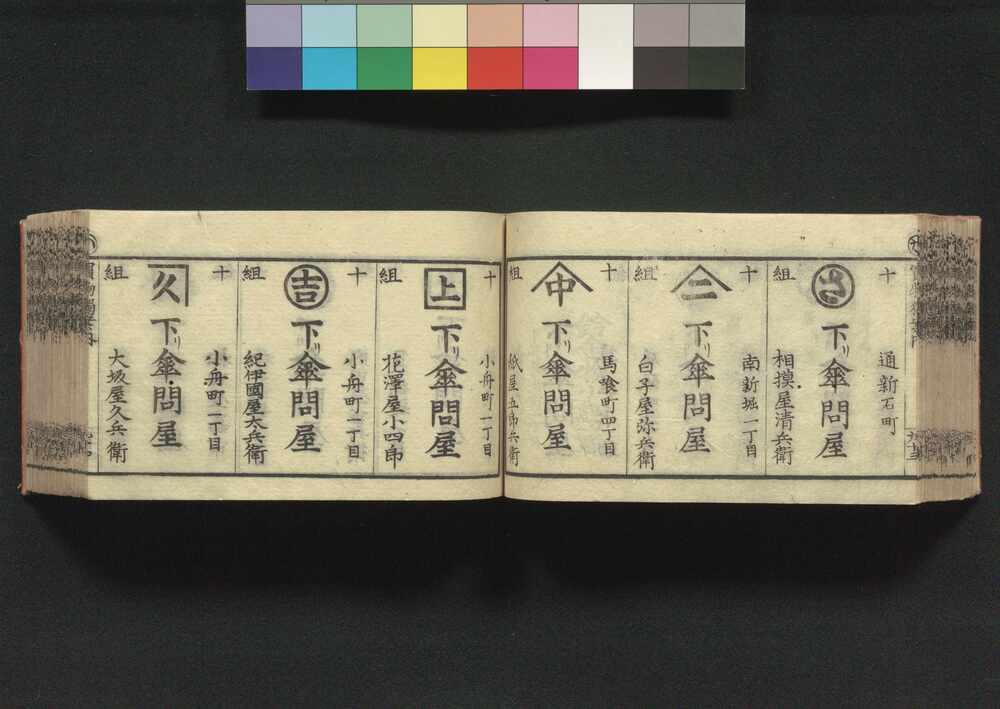 十
通新石町
さ
下リ傘問屋
組
相摸屋清兵衛
十
南新堀一丁目
二
下リ傘問屋
組
白子屋弥兵衛
十
馬喰町四丁目
中
下リ傘問屋
組
紙屋五郎兵衛
十
小舟町一丁目
上
下リ傘問屋
組
花澤屋小四郎
十
小舟町一丁目
吉
下リ傘問屋
組
紀伊國屋太兵衛
十
小舟町一丁目
久
下リ傘問屋
組
大坂屋久兵衛